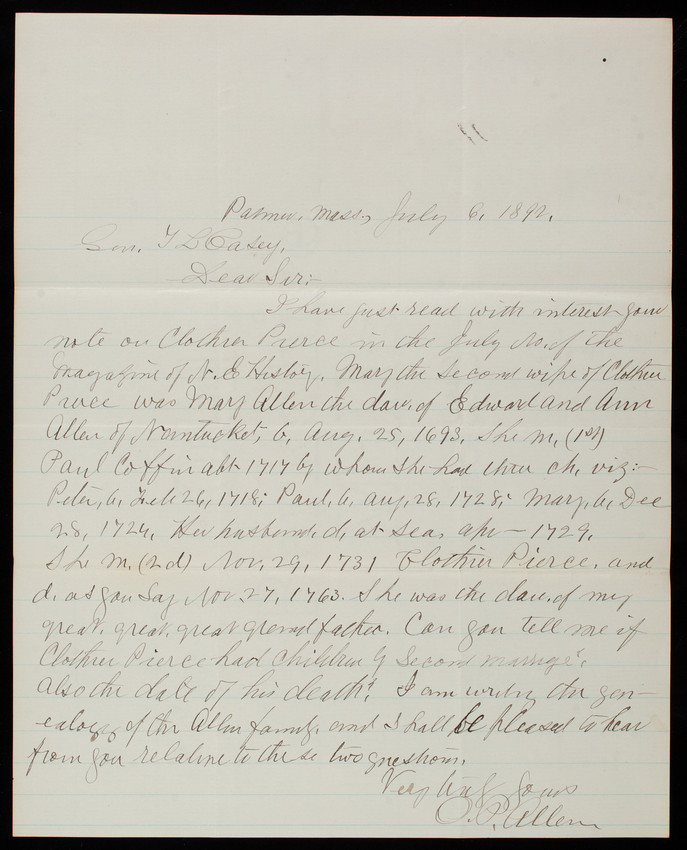 Palmer, Mass., July 6, 1892.
Gen. T L Casey,
Dear Sir:-
I have just read with interest your
note on Clothier Pierce in the July No. of the
Magazine of N. E History. Mary the second wife of Clothier
Pierce was Mary Allen the dau. of Edward and Ann
Allen of Nantucket, b. Aug. 25, 1693, She m. (1st)
Paul Coffin abt 1717 by whom she had three ch. viz:-
Peter, b. Feb 26, 1718; Paul, b. Aug. 28, 1728; Mary, b. Dec
28, 1724, Her husband d. at sea, Apr - 1729.
She m. (2d) Nov. 29, 1731 Clothier Pierce, and
d. as you say Nov. 27, 1763. She was the dau. of my
great, great, great grand father. Can you tell me if
Clothier Pierce had children by second marriage?
also the date of his death? I am writing the gen-
ealogy of the Allen family, and I shall be pleased to hear
from you relative to these two questions.
Very truly yours
O. P. Allen